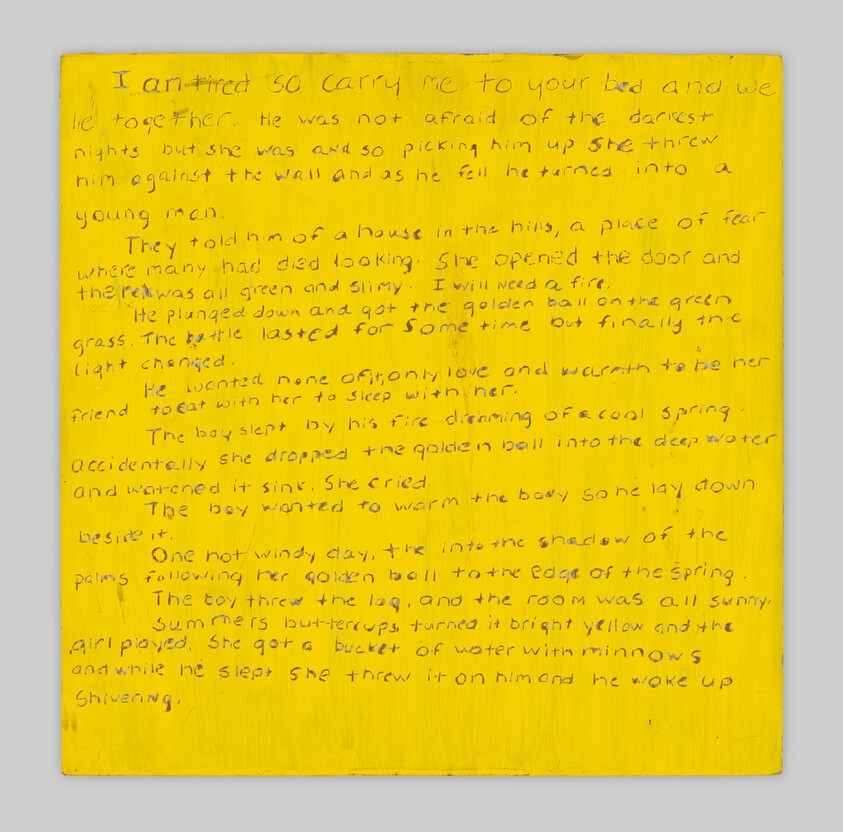 I am tired so carry me to your bed and we
lie together. He was not afraid of the darkest
nights but she was and so picking him up she threw
him against the wall and as he fell he turned into a
young man.
They told him of a house in the hills, a place of fear
where many had died looking. She opened the door and
there was all green and slimy. I will need a fire.
He plunged down and got the golden ball on the green
grass. The battle lasted for some time but finally the
light changed.
He wanted none of it, only love and warmth to be her
friend to eat with her to sleep with her.
The boy slept by his fire dreaming of a cool spring.
accidentally she dropped the golden ball into the deep water
and watched it sink. She cried.
The boy wanted to warm the body so he lay down
beside it.
One hot windy day, the into the shadow of the
palms following her golden ball to the edge of the spring.
The boy threw the log, and the room was all sunny.
Summers buttercups turned it bright yellow and the
girl played. She got a bucket of water with minnows
and while he slept she threw it on him and he woke up
shivering.